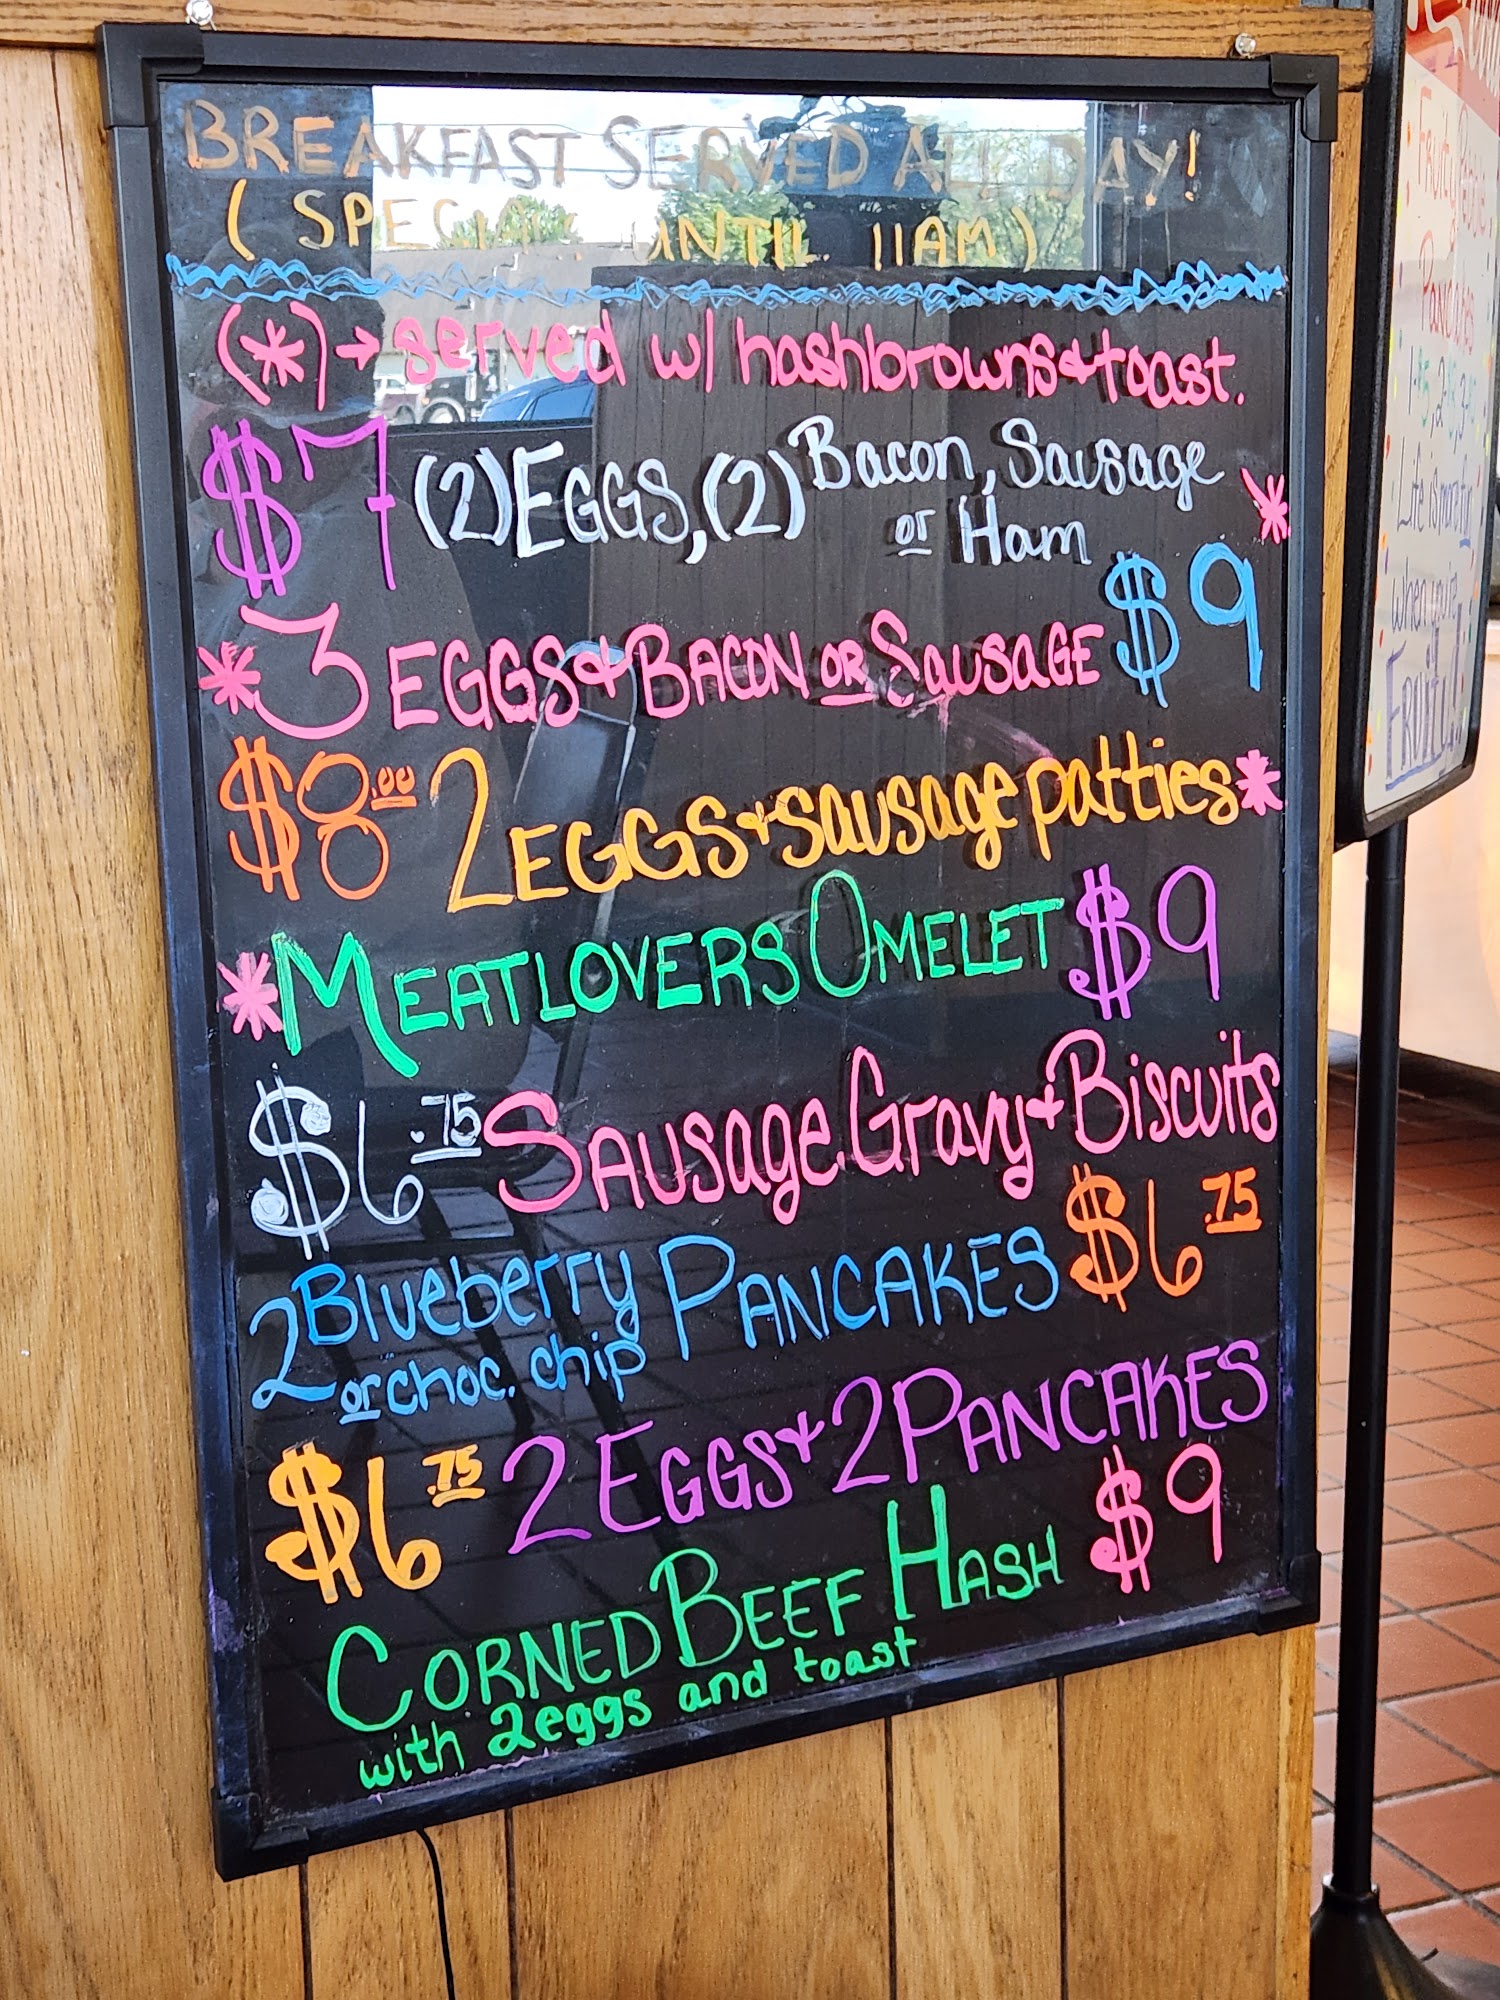 BREAKFAST SERVED ALL DAY!
( SPECIALS UNTIL 11AM )
(*) → served w/ hashbrowns & toast.
$7 (2) EGGS, (2) Bacon, Sausage
or Ham *
* 3 EGGS & BACON OR SAUSAGE $9
$8.00 2 EGGS & sausage patties *
* MEATLOVERS OMELET $9
$6.75 SAUSAGE Gravy & Biscuits
2 Blueberry PANCAKES $6.75
or choc. chip
$6.75 2 EGGS & 2 PANCAKES
CORNED BEEF HASH $9
with 2 eggs and toast
Pancakes
Life is more fun
when you're
FRUITY!